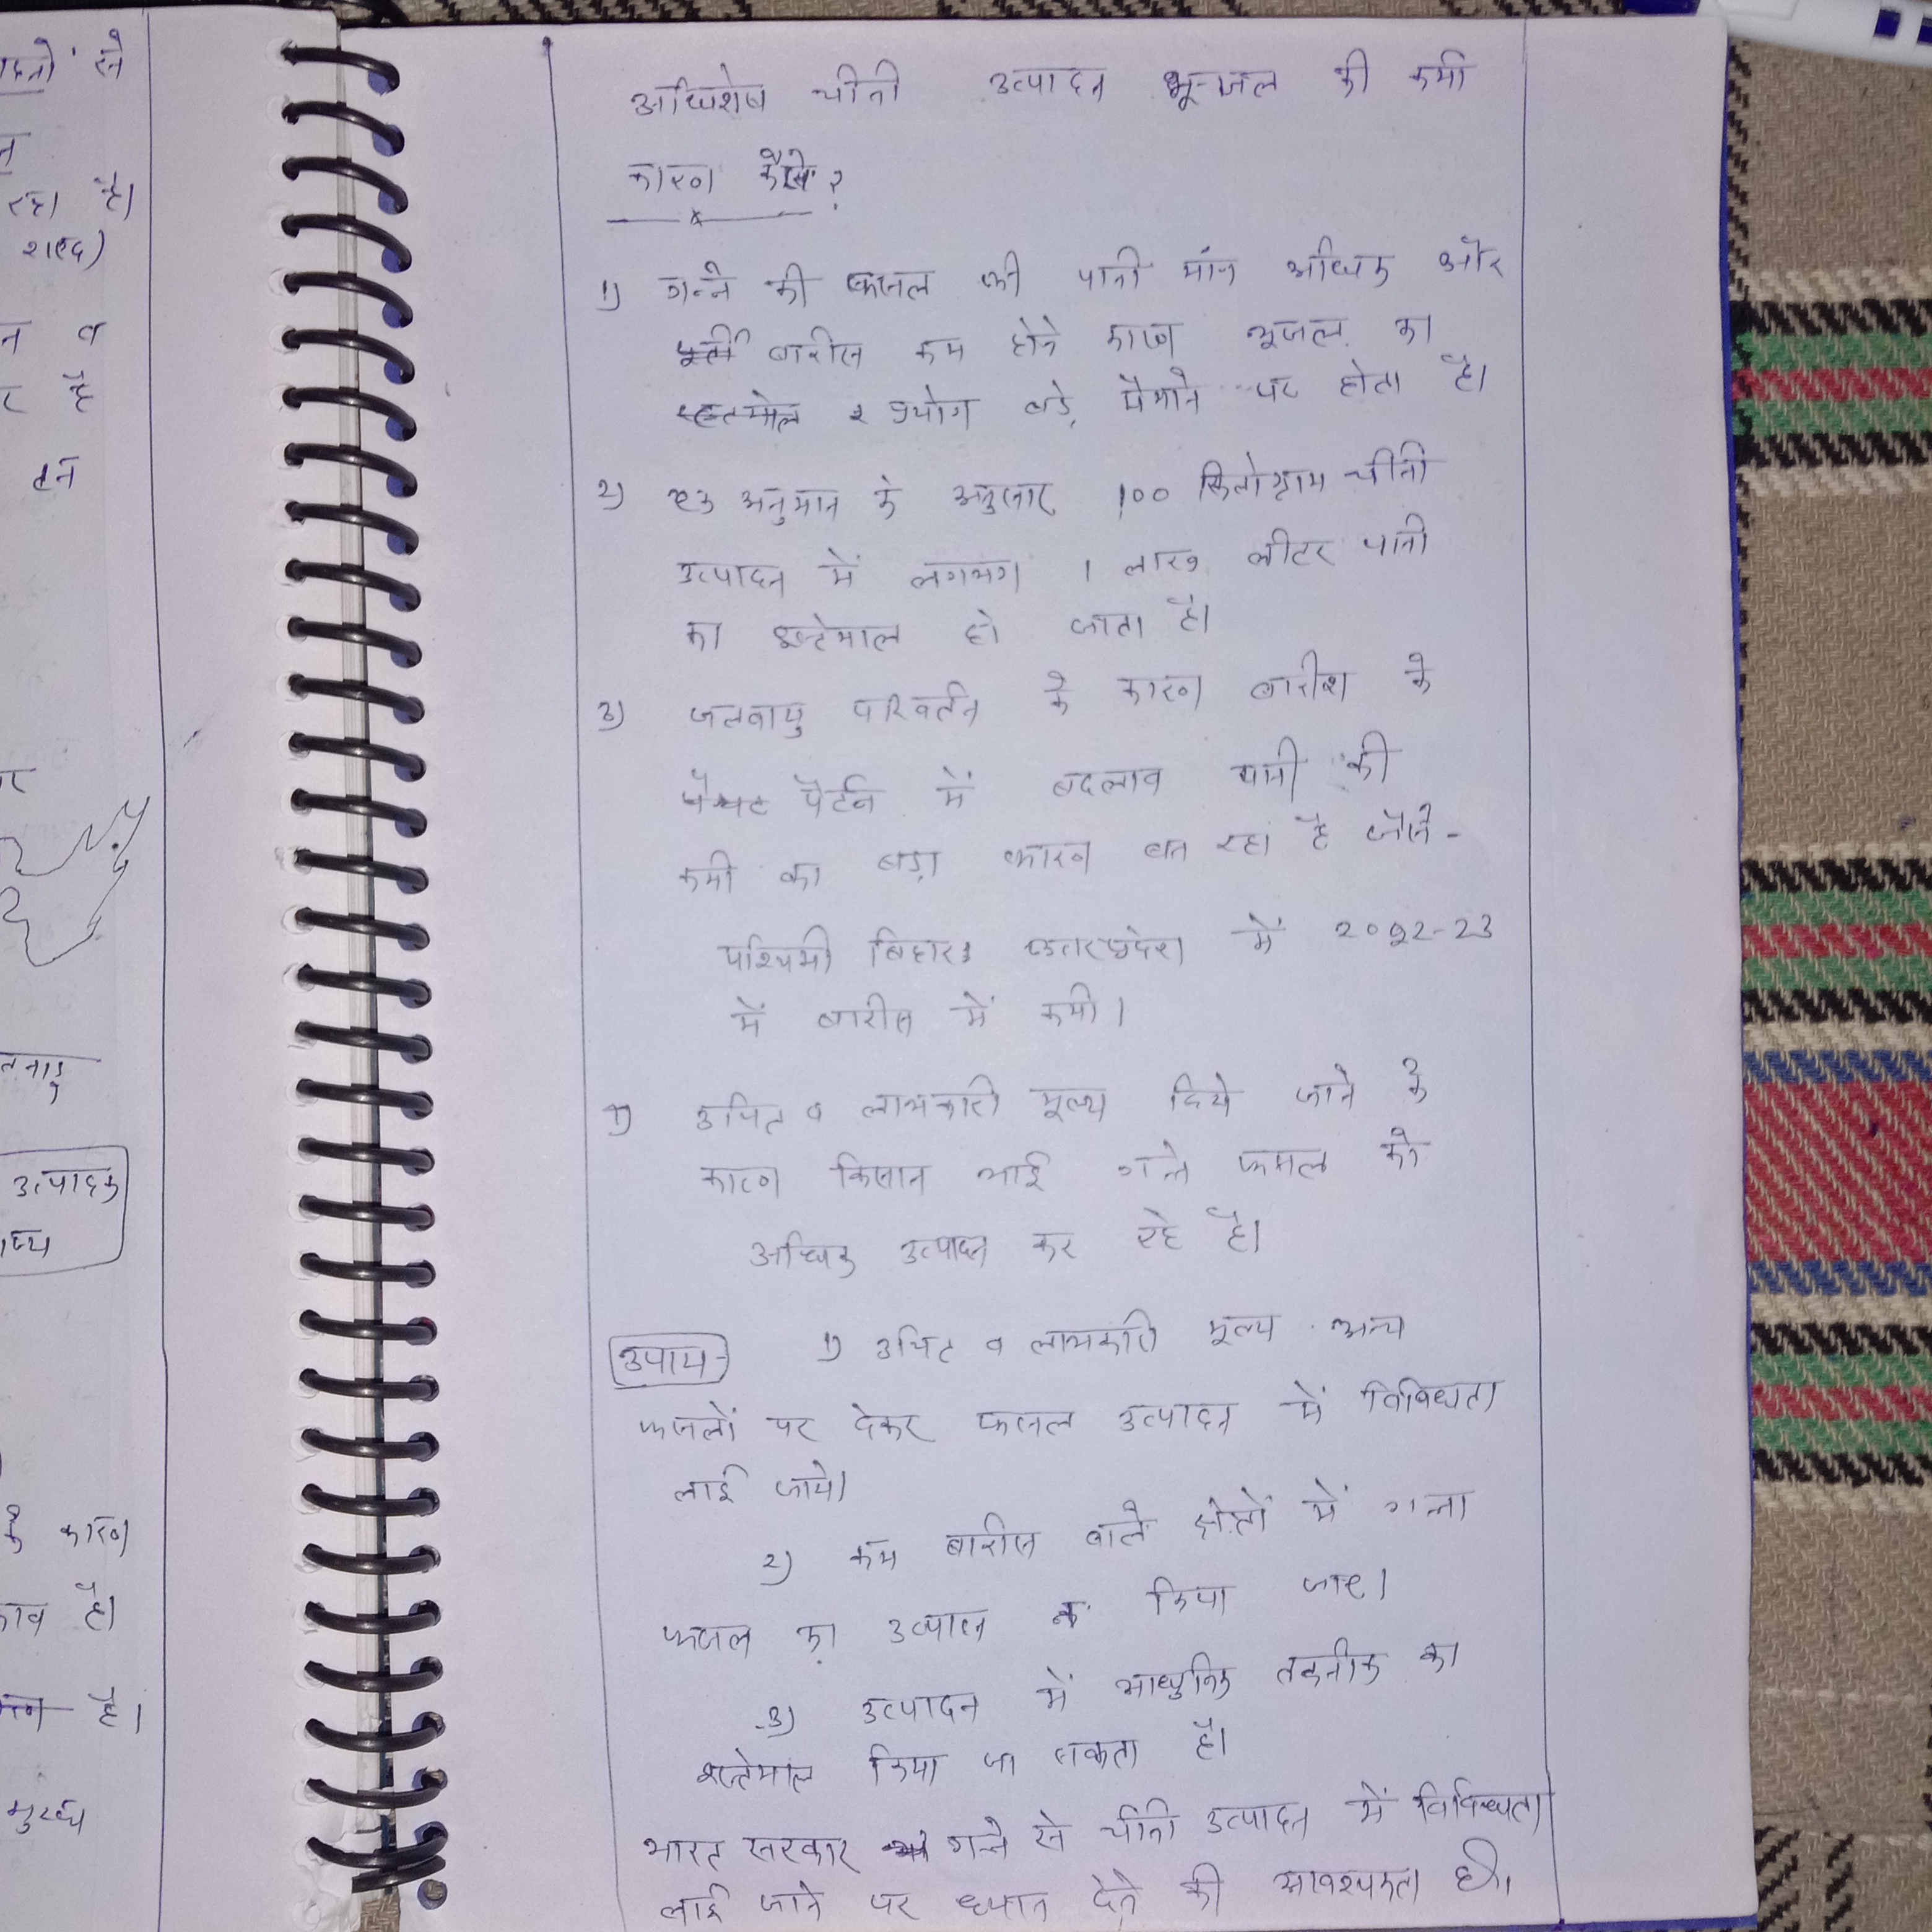 अधिशेष चीनी उत्पादन भू-जल की कमी
कारण कैसे?
1) गन्ने की फसल की पानी मांग अधिक और
बारीस कम होने कारण भूजल का
प्रयोग बड़े पैमाने पर होता है।
2) एक अनुमान के अनुसार 100 किलोग्राम चीनी
उत्पादन में लगभग 1 लाख लीटर पानी
का इस्तेमाल हो जाता है।
3) जलवायु परिवर्तन के कारण बारीश के
पैर्टन में बदलाव पानी की
कमी का बड़ा कारण बन रहा है जैसे-
पश्चिमी बिहार उत्तरप्रदेश में 2022-23
में बारीस में कमी।
उचित व लाभकारी मूल्य दिये जाने के
कारण किसान भाई गन्ने फसल को
अधिक उत्पादन कर रहे है।
उपाय- 1) उचित व लाभकारी मूल्य अन्य
फसलों पर देकर फसल उत्पादन में विविधता
लाई जाये।
2) कम बारीस वाले क्षेत्रों में गन्ना
फसल का उत्पादन न किया जाए।
3) उत्पादन में आधुनिक तकनीक का
इस्तेमाल किया जा सकता है।
भारत सरकार गन्ने से चीनी उत्पादन में विविधता
लाई जाने पर ध्यान देने की आवश्यकता है।
से
रहा है।
शब्द)
न व
र है
उत्पादक
के कारण
है।
है।